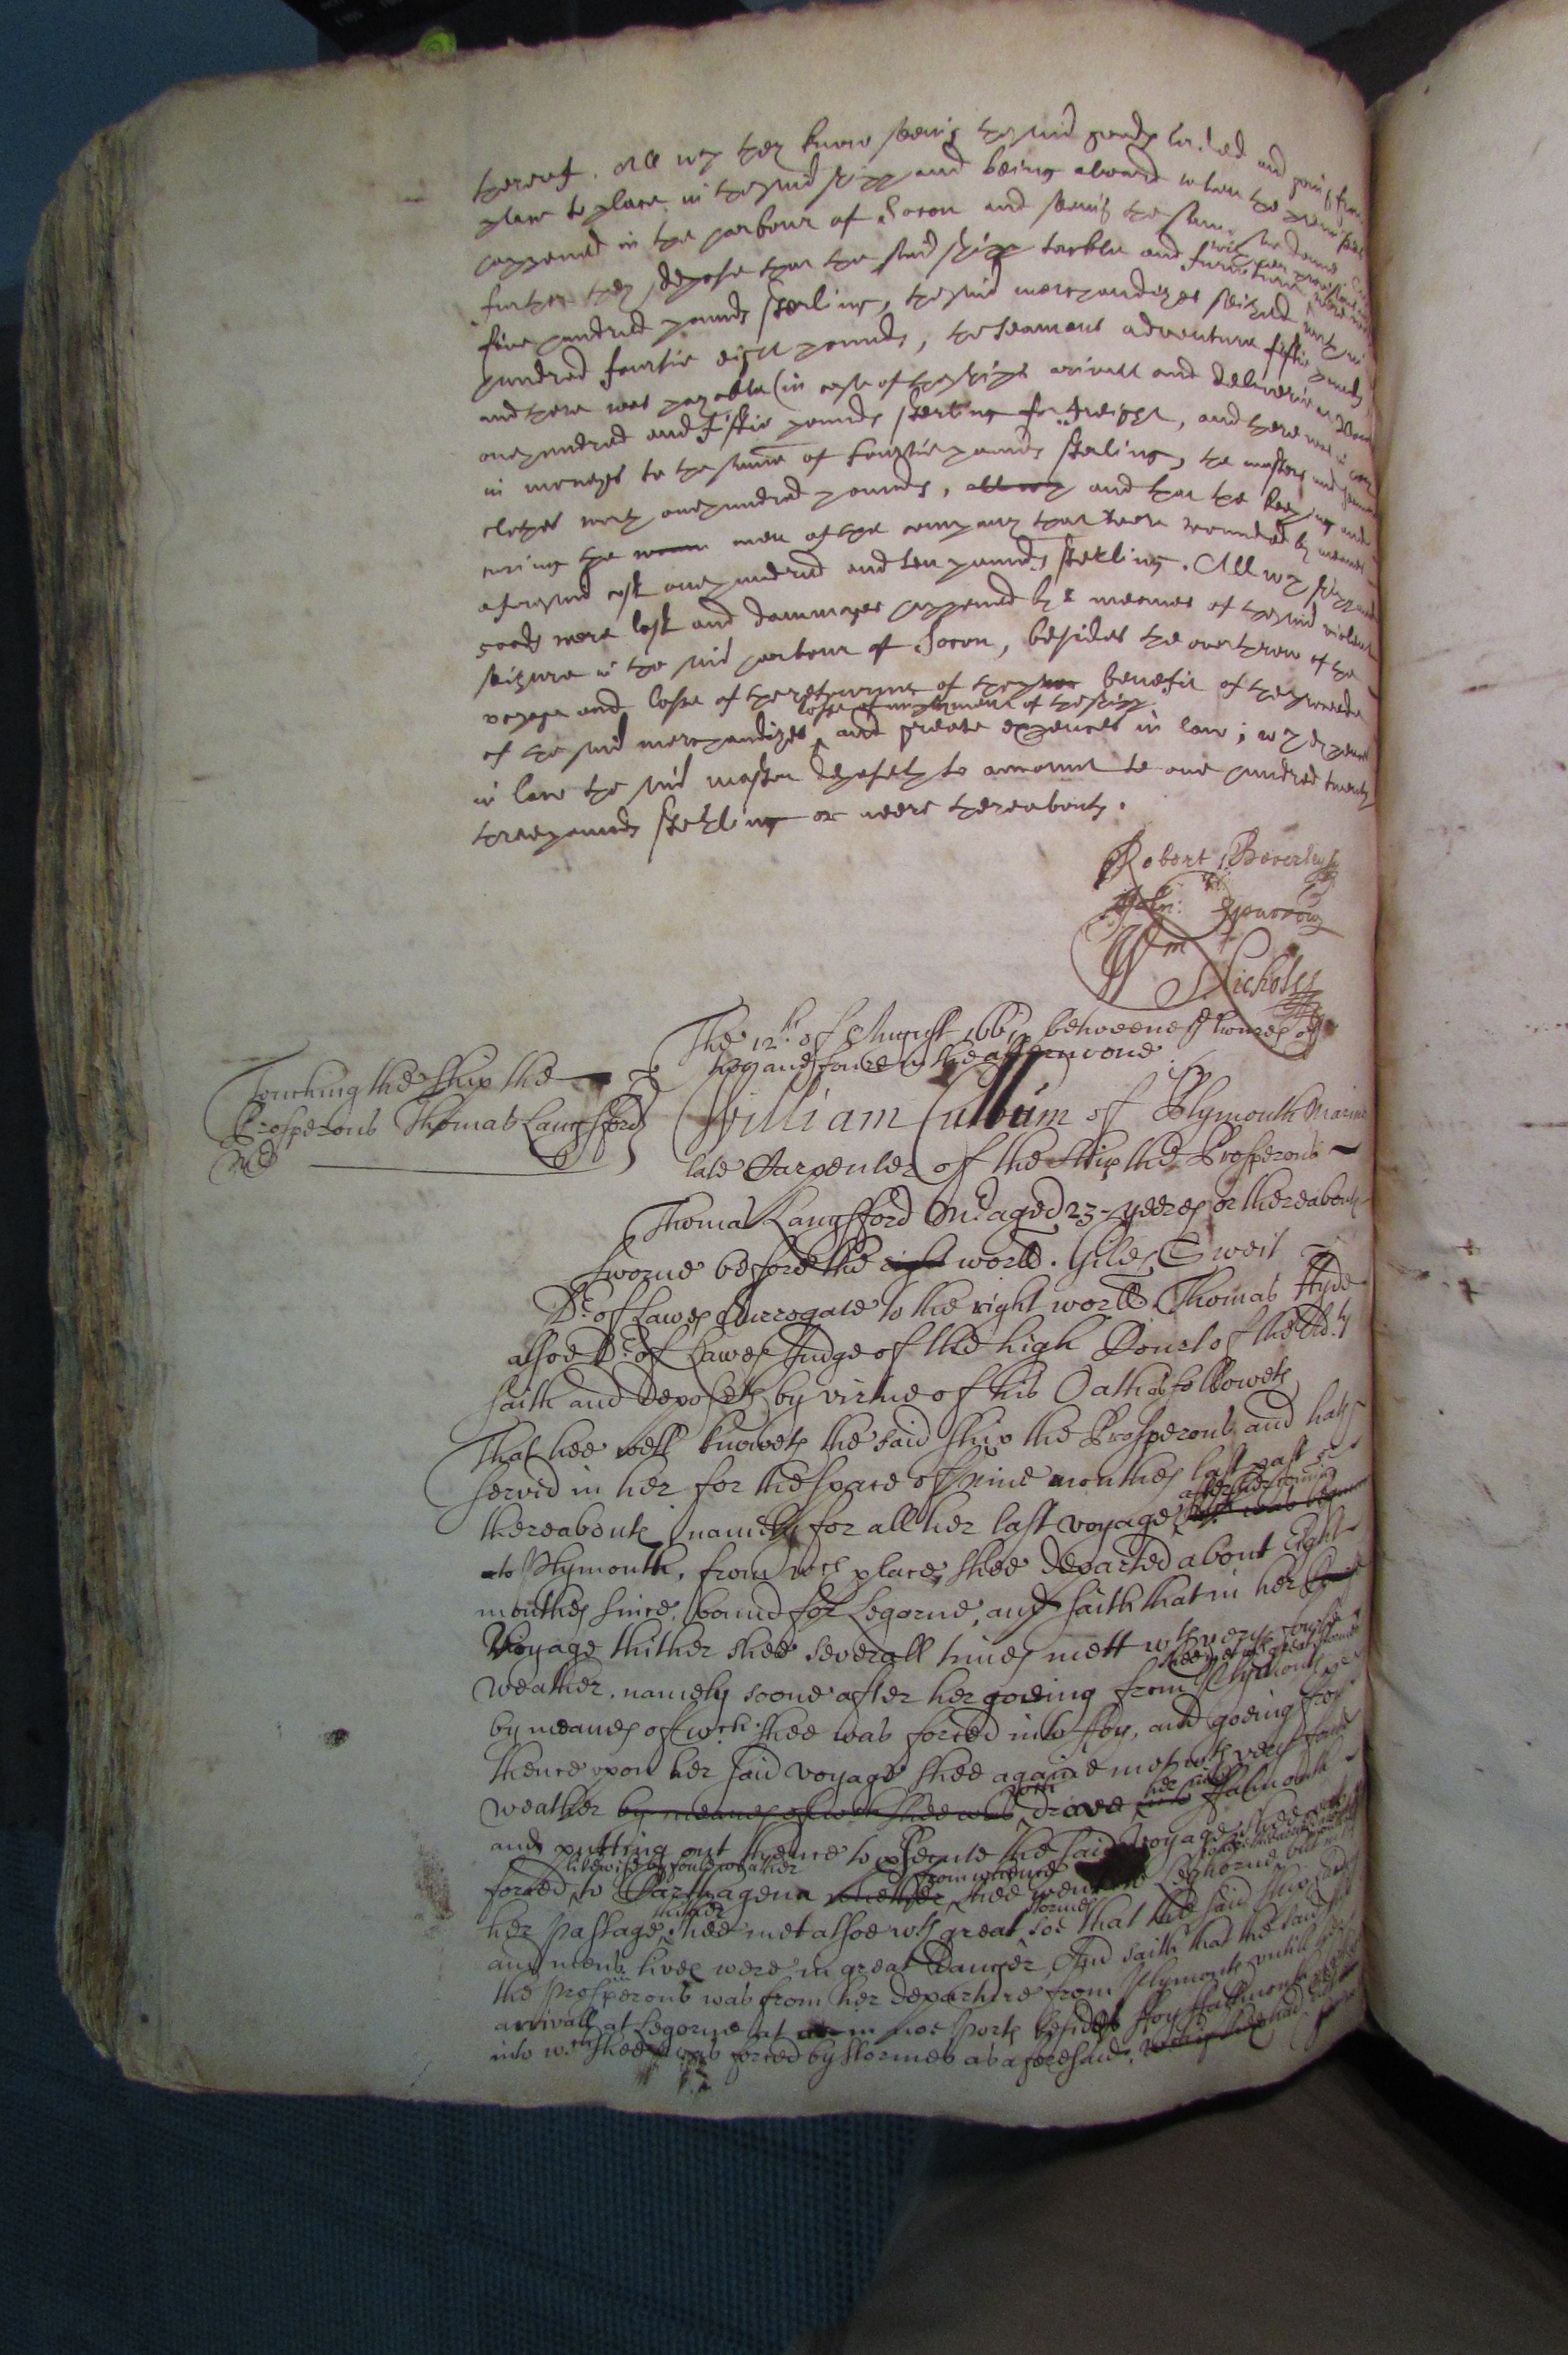 thereof. All wch they know seeing the said goods laded and going from
place to place in the said shipp and being aboard when the premisses
happened in the harbour of Socon and seeing the same soe donne
further they depose that the said shipp tackle and furniture
five hundred pounds sterling, the said merchandizes seized worth
hundred fourtie eight pounds, the seamens adventure fiftie pounds
and there was payable (in case of the ships arivall and deliverie
one hundred and fiftie pounds sterling for freight, and there was
in moneyes to the summe of fourtie pounds sterling, the masters and
clothes worth one hundred pounds, all wch and that the keeping and
curing the men of the company that were wounded by meanes
aforesaid cost one hundred and ten pounds sterling. All wch shipp and
goods were lost and dammages happened by meanes of the said violent
seizure in the said harbour of Socon, besides the overthrow of the
voyage and losse of the retourne of the benefit of the proceede
losse of imployment of the shipp
of the said merchandizes and greate expences in law; wch expences
in law the said master deposeth to amount to one hundred twenty
three pounds sterling or neere thereabouts.
Robert Beverley
Wm Nicholss
The 12th of August 1661 betweene the houres of
two and foure in the afternoone
Touching the Ship the
Prosperous Thomas Langsford
Mr
William Cullum of Plymouth Mariner
late Carpenter of the Ship the Prosperous
Thomas Langsford Mr. aged 23 yeeres or thereabouts
sworne before the right worll. Giles Sweit
Dr. of Lawes Surrogate to the right worll Thomas Hyde
alsoe Dr. of Lawes Judge of the high Court of the Adty
saith and deposeth by virtue of his Oath as followeth
That hee well knoweth the said ship the Prosperous and hath
served in her for the space of nine monthes last past or
thereabouts namely for all her last voyage after her coming
to Plymouth, from wch place shee departed about Eight
monthes since, bound for Legorne, and saith that in her
Voyage thither shee severall times mett wth very
weather, namely soone after her goeing from Plymouth
by meanes of wch shee was forced into Foy, and goeing from
thence upon her said voyage shee againe met wth very foule
weather by meanes of wch shee was drove into Falmouth
and putting out thence to psecute the said voyage shee
likewise by foule weather from whence
forced to Carthagena whether shee went to Leghorne but in
thither stormes
her passage shee met alsoe wth great soe that the said ship
and mens lives were in great danger, And saith that the said ship
the Prosperous was from her departure from Plymouth untill her
arivall at Legorne at noe Ports besides Foy Falmouth
into wch shee was forced by stormes as aforesaid,